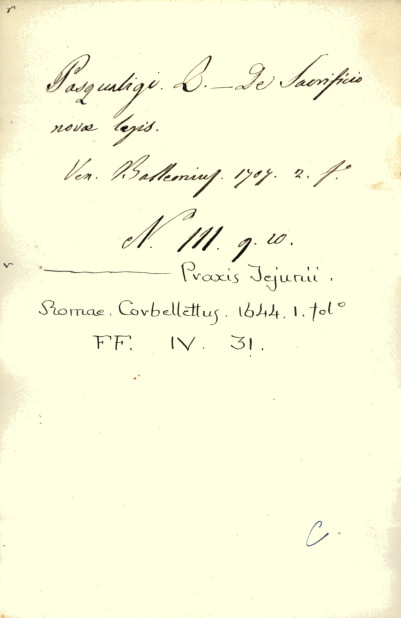 Pasqualigi. Z. — De Sacrificio
novæ legis.
Ven. Balleonius. 1707. 2. fº
N. III. g. 10.
——— Praxis Jejunii.
Romae. Corbellettus. 1644. 1. folº
FF. IV. 31.
C.